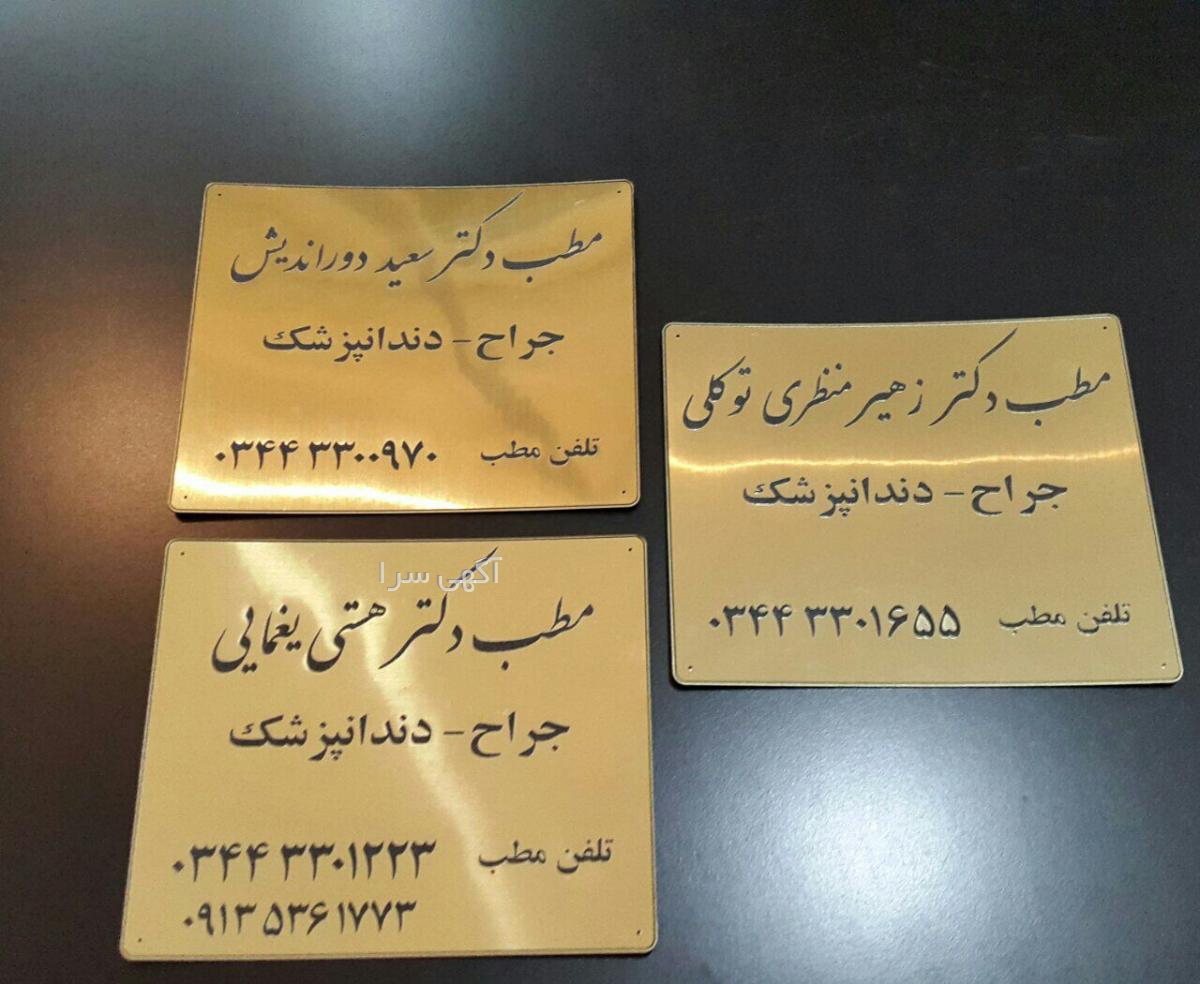 مطب دکتر سعید دوراندیش
جراح - دندانپزشک
تلفن مطب ۰۳۴۴ ۳۳۰۰۹۷۰
مطب دکتر زهیر منظری توکلی
جراح - دندانپزشک
تلفن مطب ۰۳۴۴ ۳۳۰۱۶۵۵
آگهی سرا
مطب دکتر هستی یغمایی
جراح - دندانپزشک
تلفن مطب ۰۳۴۴ ۳۳۰۱۲۲۳
۰۹۱۳ ۵۳۶۱۷۷۳